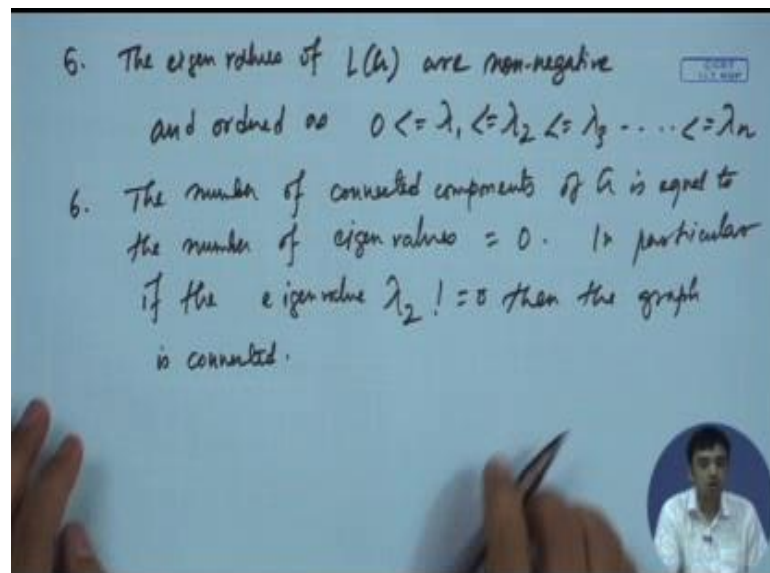 6. The eigen values of L(G) are non-negative
and ordered as 0 <= λ₁ <= λ₂ <= λ₃ ..... <= λn
6. The number of connected components of G is equal to
the number of eigen values = 0. In particular
if the eigenvalue λ₂ != 0 then the graph
is connected.